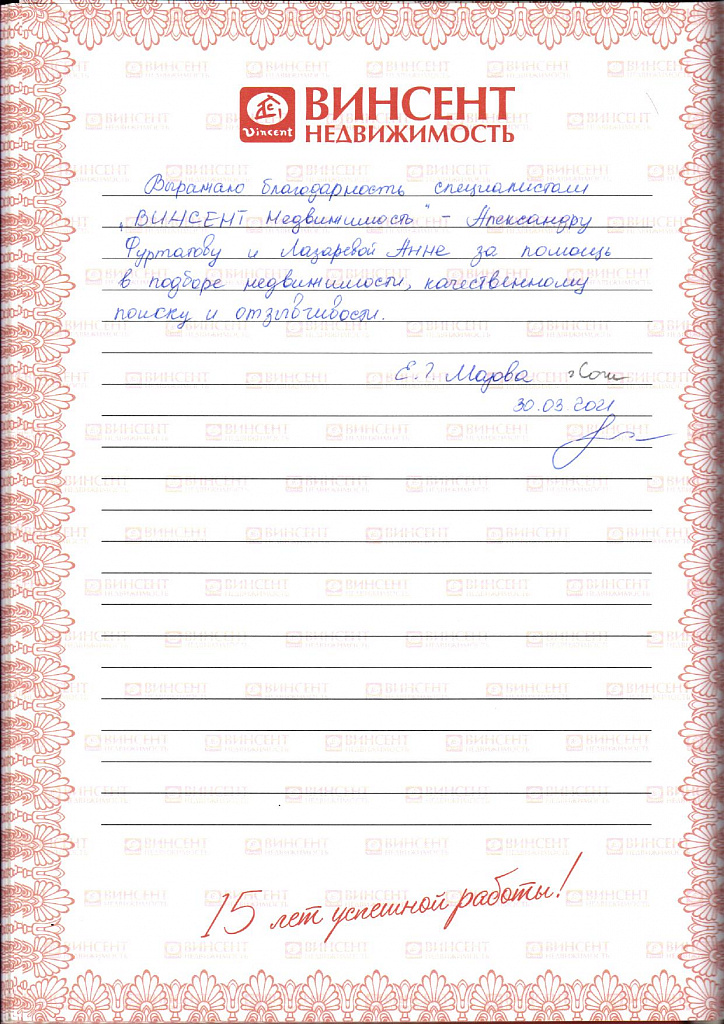 Vincent
ВИНСЕНТ
НЕДВИЖИМОСТЬ
Выражаю благодарность специалистам
„ВИНСЕНТ Недвижимость" - Александру
Фуртатову и Лазаревой Анне за помощь
в подборе недвижимости, качественному
поиску и отзывчивости.
Е.Г. Мазова г Сочи
30.03.2021
15 лет успешной работы!